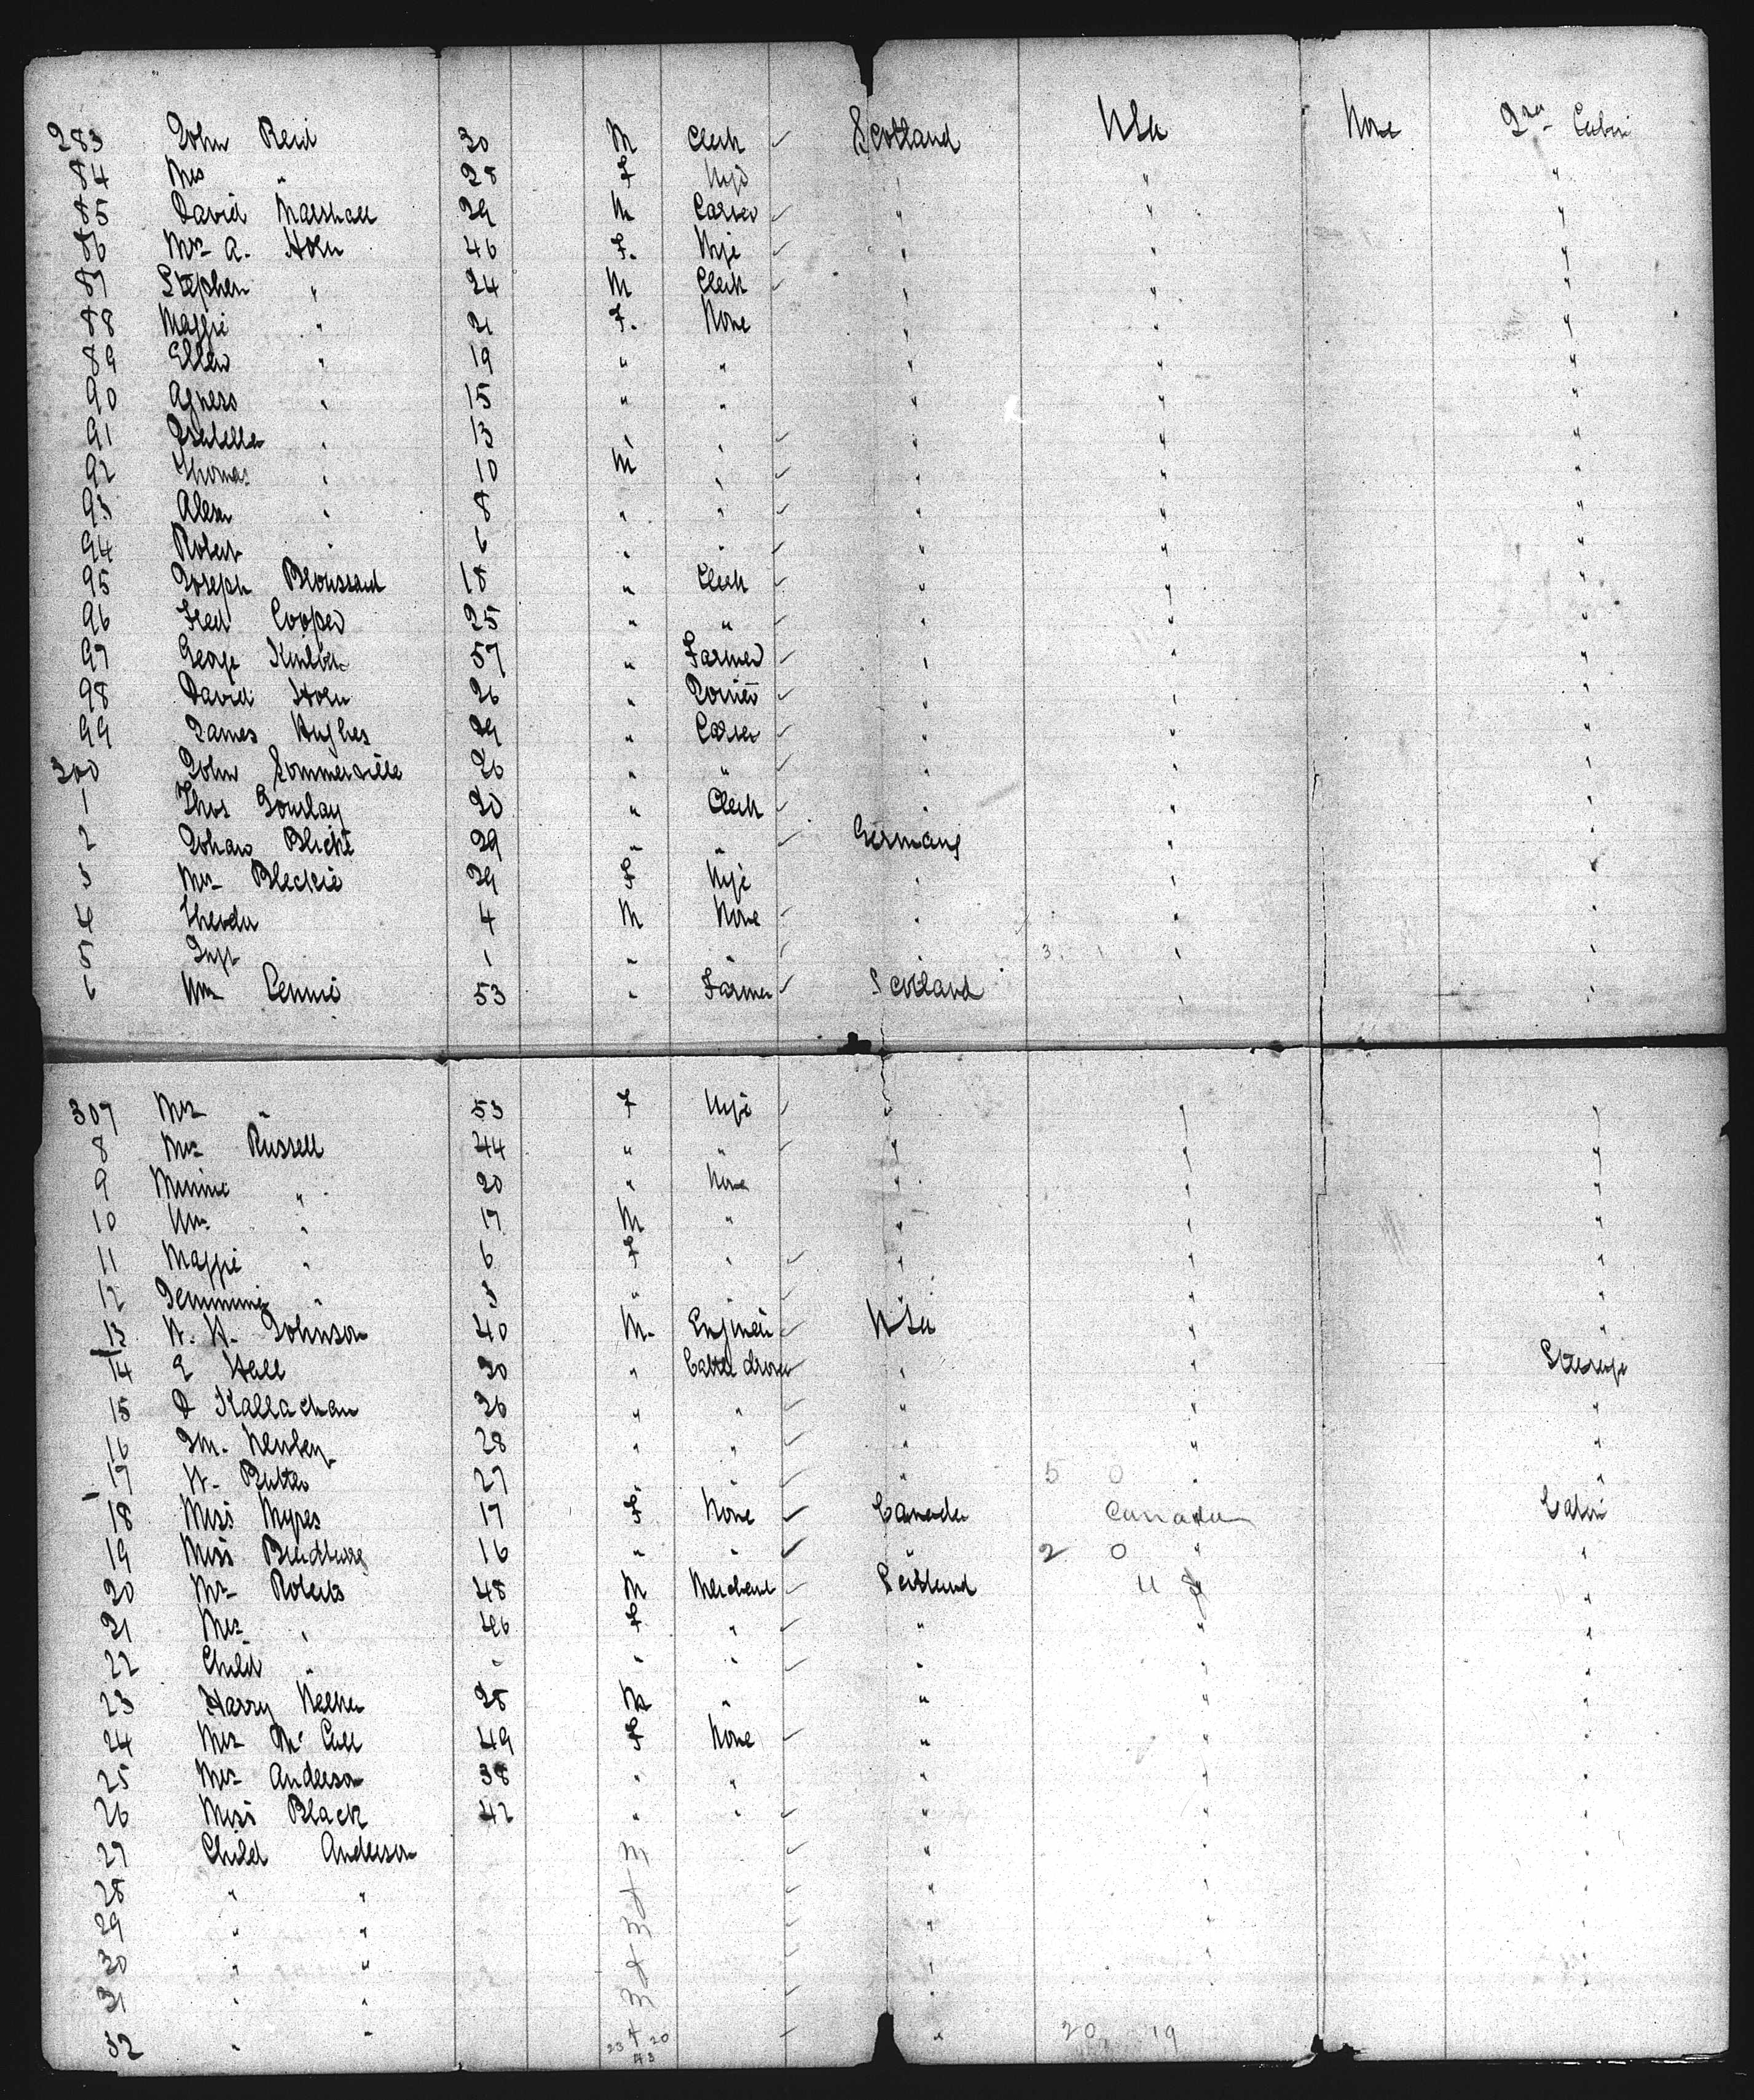 283 John Reid 30 M Clerk ✓ Scotland USA None 2nd Cabin
84 Mrs " 28 F Wife " " "
85 David Marshall 29 M Carver ✓ " " "
86 Mrs A. Horn 46 F. Wife ✓ " " "
87 Stephen " 24 M Clerk ✓ " " "
88 Maggie " 21 F. None " " "
89 Ellen " 19 " " " " "
90 Agness " 15 " " " " "
91 Isabella " 13 " " ✓ " " "
92 Thomas " 10 M " ✓ " " "
93 Alexr " 8 " " ✓ " " "
94 Robert " 6 " " ✓ " " "
95 Joseph Broussard 18 " Clerk ✓ " " "
96 Fred Cooper 25 " " ✓ " " "
97 George 57 " Farmer ✓ " " "
98 David Horn 26 " ✓ " " "
99 James Hughes 29 " Carver ✓ " " "
300 John Sommerville 20 " " ✓ " " "
1 Thos Gourlay 20 " Clerk ✓ " " "
2 Johan 29 " " ✓ Germany " "
3 Mrs Bleckie 29 F Wife " " "
4 4 M None ✓ " " "
5 Inft 1 " " ✓ " 3 1 " "
6 Wm Rennie 53 " Farmer ✓ Scotland " "
307 Mrs " 53 F Wife ✓ " " "
8 Mrs Russell 44 " " ✓ " " "
9 Minnie " 20 " None " " "
10 Wm " 17 M " " " "
11 Maggie " 6 F " ✓ " " "
12 Jemmima " 3 " " ✓ " " "
13 W. H. Johnson 40 M. Engineer ✓ USA " "
14 E Hall 30 " Cattle drover " " Steerage
15 D Kallachan 26 " " ✓ " " "
16 Jn. Newbery 28 " " ✓ " " "
17 W. Butler 27 " " ✓ " 5 0 " "
18 Miss Myres 17 F None ✓ Canada Canada Cabin
19 Miss Bradburg 16 " " ✓ " 2 0 " "
20 Mr Roberts 48 M Merchant ✓ Scotland U S "
21 Mrs " 46 F " ✓ " " "
22 Child " " " " ✓ " " "
23 Harry Walker 28 M " " " "
24 Mrs Mc Call 49 F None ✓ " " "
25 Mrs Anderson 38 " " " " "
26 Miss Black 42 " " ✓ " " "
27 Child Anderson M ✓ " " "
28 " " F ✓ " " "
29 " " M ✓ " " "
30 " " F ✓ " " "
31 " " M ✓ " "
32 " " F ✓ " 20 19
23 20
43